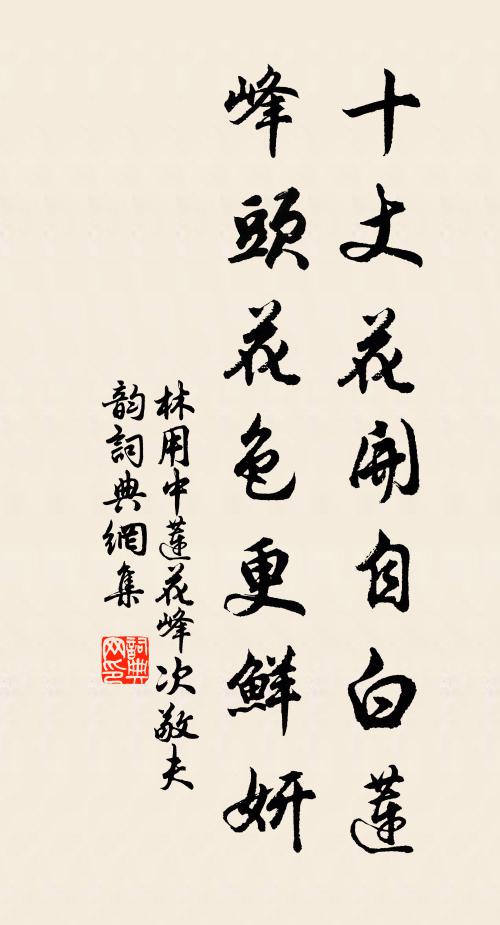 十丈花開自白蓮
峰頭花色更鮮妍
林用中蓮花峰次敬夫
韵詞典網集
詞典網印